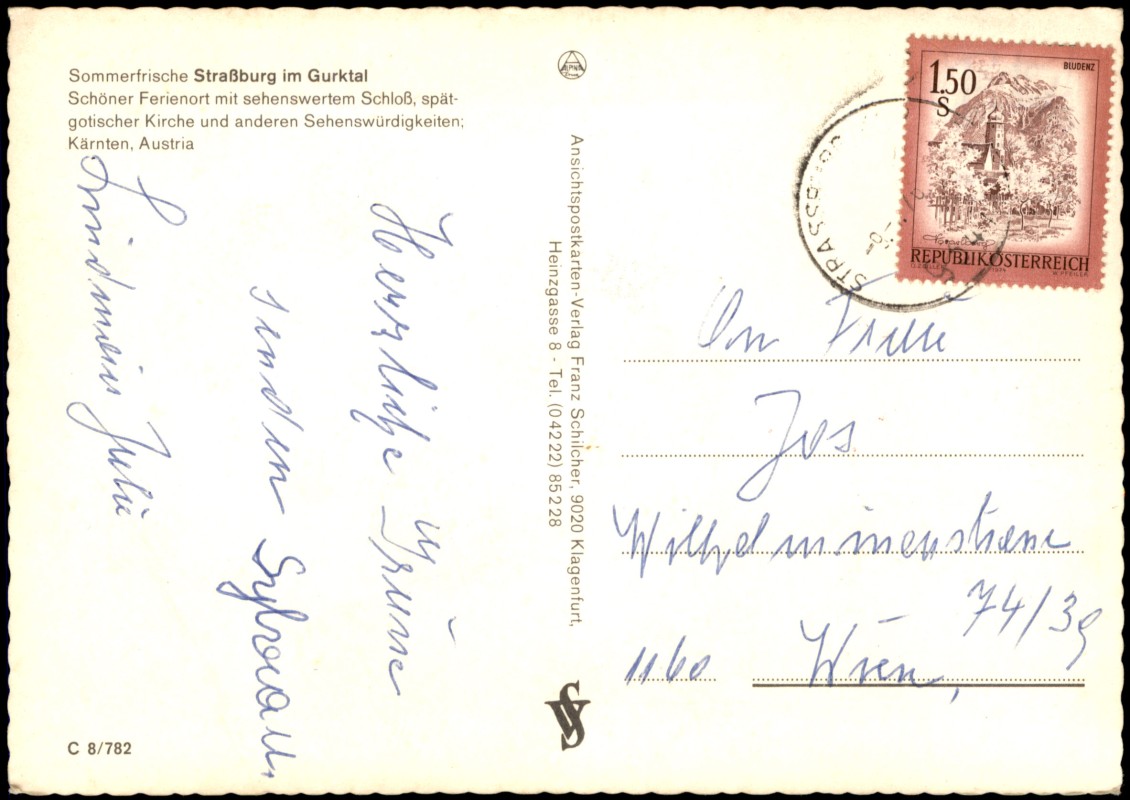 Sommerfrische Straßburg im Gurktal
Schöner Ferienort mit sehenswertem Schloß, spät-
gotischer Kirche und anderen Sehenswürdigkeiten;
Kärnten, Austria
Herzliche Grüsse
senden
Julie
C 8/782
Ansichtspostkarten-Verlag Franz Schilcher, 9020 Klagenfurt,
Heinzgasse 8 - Tel. (0 42 22) 85 2 28
BLUDENZ
1.50
S
REPUBLIK ÖSTERREICH
1974
STRASSBURG
Familie
Jos
Wilhelminenstrasse
74/39
1160 Wien,